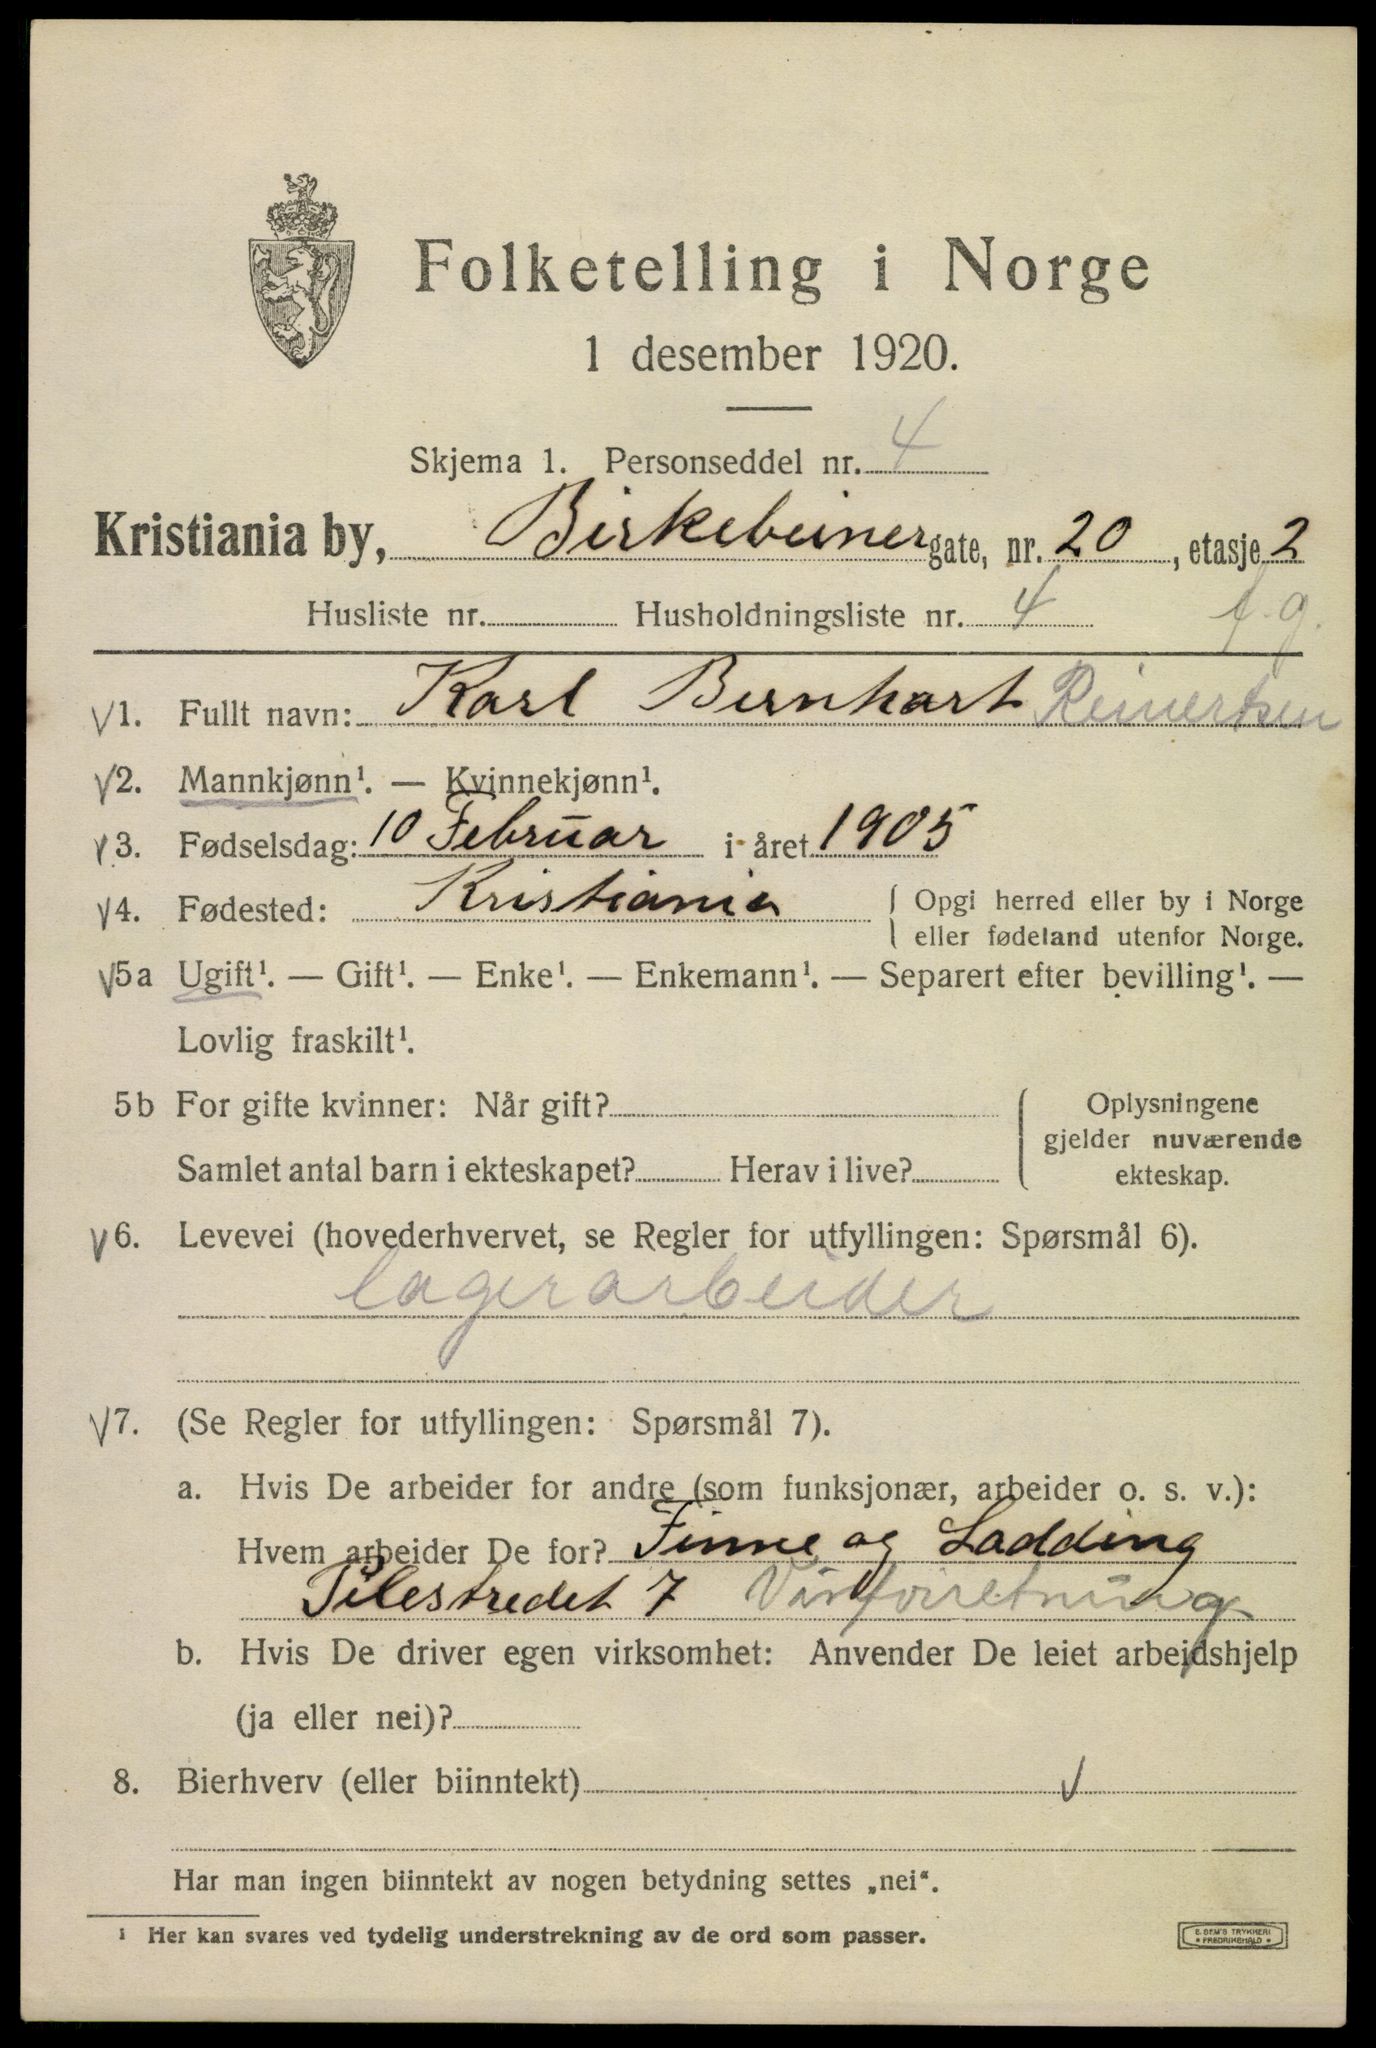 Folketelling i Norge
1 desember 1920.
Skjema 1. Personseddel nr. 4
Kristiania by, Birkebeiner gate, nr. 20, etasje 2
Husliste nr. Husholdningsliste nr. 4 f.g.
1. Fullt navn: Karl Bernhart Reinertsen
2. Mannkjønn¹. — Kvinnekjønn¹.
3. Fødselsdag: 10 Februar i året 1905
4. Fødested: Kristiania { Opgi herred eller by i Norge
eller fødeland utenfor Norge.
5a Ugift¹. — Gift¹. — Enke¹. — Enkemann¹. — Separert efter bevilling¹. —
Lovlig fraskilt¹.
5b For gifte kvinner: Når gift? { Oplysningene
gjelder nuværende
Samlet antal barn i ekteskapet? Herav i live? ekteskap.
6. Levevei (hovederhvervet, se Regler for utfyllingen: Spørsmål 6).
lagerarbeider
7. (Se Regler for utfyllingen: Spørsmål 7).
a. Hvis De arbeider for andre (som funksjonær, arbeider o. s. v.):
Hvem arbeider De for? Finne og Ladding
Pilestredet 7
b. Hvis De driver egen virksomhet: Anvender De leiet arbeidshjelp
(ja eller nei)?
8. Bierhverv (eller biinntekt)
Har man ingen biinntekt av nogen betydning settes „nei“.
¹ Her kan svares ved tydelig understrekning av de ord som passer.
E. SEM'S TRYKKERI
* FREDRIKSHALD *